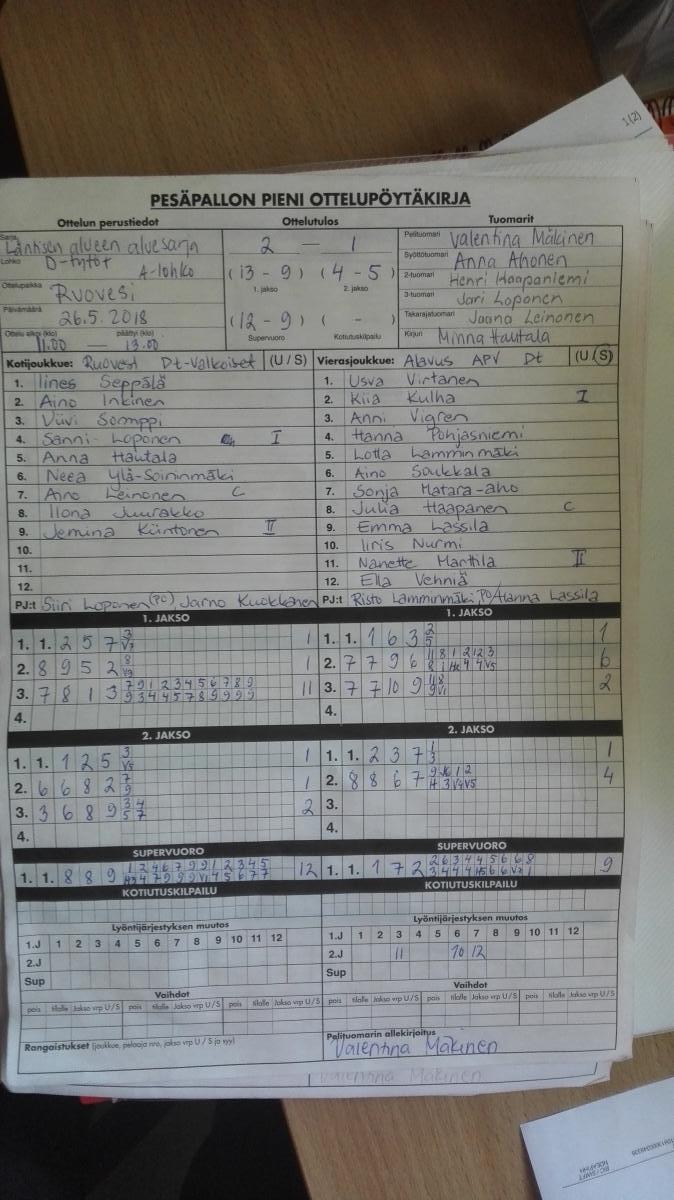 1(2)
PESÄPALLON PIENI OTTELUPÖYTÄKIRJA
Ottelun perustiedot Ottelutulos Tuomarit
Sarja Läntisen alueen aluesarja
Lohko D-tytöt A-lohko
Ottelupaikka Ruovesi
Päivämäärä 26.5.2018
Ottelu alkoi (klo) 11.00 päättyi (klo) 13.00
2 — 1
(13 - 9) (4 - 5)
1. jakso 2. jakso
(12 - 9) ( - )
Supervuoro Kotiutuskilpailu
Pelituomari Valentina Mäkinen
Syöttötuomari Anna Ahonen
2-tuomari Henri Haapaniemi
3-tuomari Jari Loponen
Takarajatuomari Jaana Leinonen
Kirjuri Minna Hautala
Kotijoukkue: Ruovesi Dt-Valkoiset (U / S)
1. Iines Seppälä
2. Aino Inkinen
3. Viivi Somppi
4. Sanni Loponen I
5. Anna Hautala
6. Neea Ylä-Soininmäki
7. Aino Leinonen C
8. Ilona Juurakko
9. Jemina Kiintonen II
10.
11.
12.
PJ:t Siiri Loponen (PO), Jarno Kuokkanen
Vierasjoukkue: Alavus APV Dt (U / S)
1. Usva Virtanen
2. Kiia Kulha I
3. Anni Vigren
4. Hanna Pohjasniemi
5. Lotta Lamminmäki
6. Aino Soukkala
7. Sonja Matara-aho
8. Julia Haapanen C
9. Emma Lassila
10. Iiris Nurmi
11. Nanette Marttila II
12. Ella Vehniä
PJ:t Risto Lamminmäki, PO/Hanna Lassila
1. JAKSO
1. 1. 2 5 7 3 V3 1
2. 8 9 5 2 8 V9 1
3. 7 8 1 3 7 9 1 2 3 4 5 6 7 8 9 11
9 3 4 4 5 7 8 9 9 9 9
4.
1. JAKSO
1. 1. 1 6 3 2 5 1
2. 7 7 9 6 11 8 1 2 12 3 6
3. 7 7 10 9 2
4.
2. JAKSO
1. 1. 1 2 5 3 V5 1
2. 6 6 8 2 7 9 1
3. 3 6 8 9 3 4 2
5 7
4.
2. JAKSO
1. 1. 2 3 7 1 3 1
2. 8 8 6 7 9 10 1 2 4
11 3 V4 V5
3.
4.
SUPERVUORO
1. 1. 8 8 9 1 2 4 6 7 9 9 1 2 3 4 5 12
KOTIUTUSKILPAILU
SUPERVUORO
1. 1. 1 7 2 2 6 3 4 4 5 6 6 8 9
KOTIUTUSKILPAILU
Lyöntijärjestyksen muutos
1.J 1 2 3 4 5 6 7 8 9 10 11 12
2.J
Sup
Lyöntijärjestyksen muutos
1.J 1 2 3 4 5 6 7 8 9 10 11 12
2.J 11 10 12
Sup
Vaihdot
pois tilalle Jakso vrp U / S pois tilalle Jakso vrp U / S pois tilalle Jakso vrp U / S
Vaihdot
pois tilalle Jakso vrp U / S pois tilalle Jakso vrp U / S pois tilalle Jakso vrp U / S
Rangaistukset (joukkue, pelaaja nro, jakso vrp U / S ja syy)
Pelituomarin allekirjoitus
Valentina Mäkinen
Valentina Mäkinen